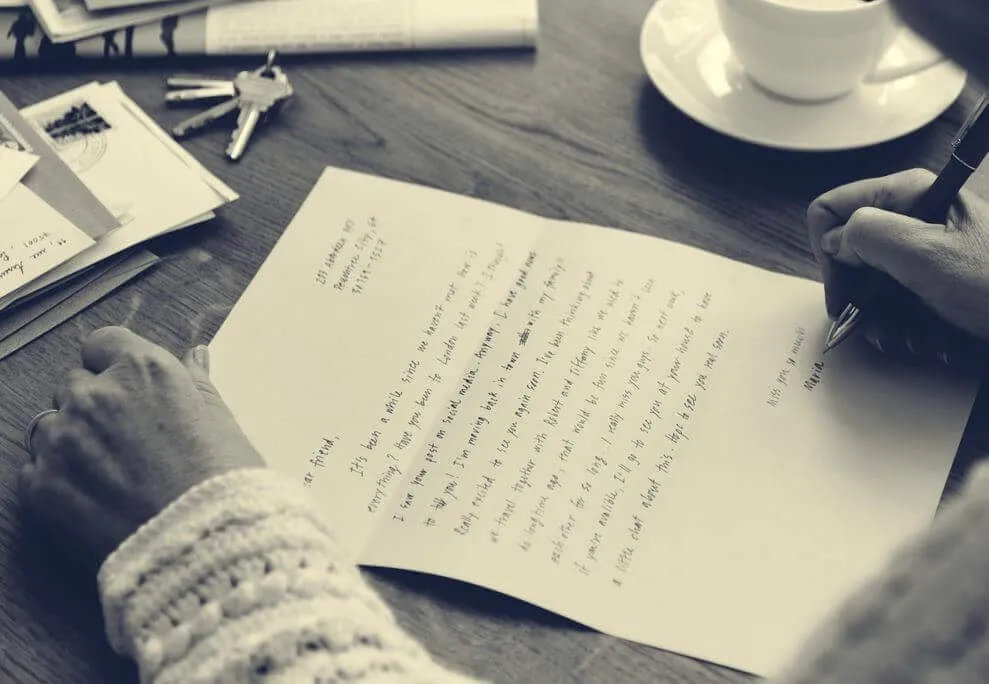 Peachtree City, GA
ear friend,
It's been a while since we haven't met. How is
everything? Have you been to London last week? I thought
I saw your post on social media. Anyway, I have good news
to tell you! I'm moving back in town with my family!!
Really excited to see you again soon. I've been thinking about
we travel together with Robert and Tiffany like we used to
do longtime ago, that would be fun since we haven't seen
each other for so long. I really miss you guys. So next week,
if you're avalible, I'll go to see you at your house to have
a little chat about this. Hope to see you real soon.
Miss you so much
Maria